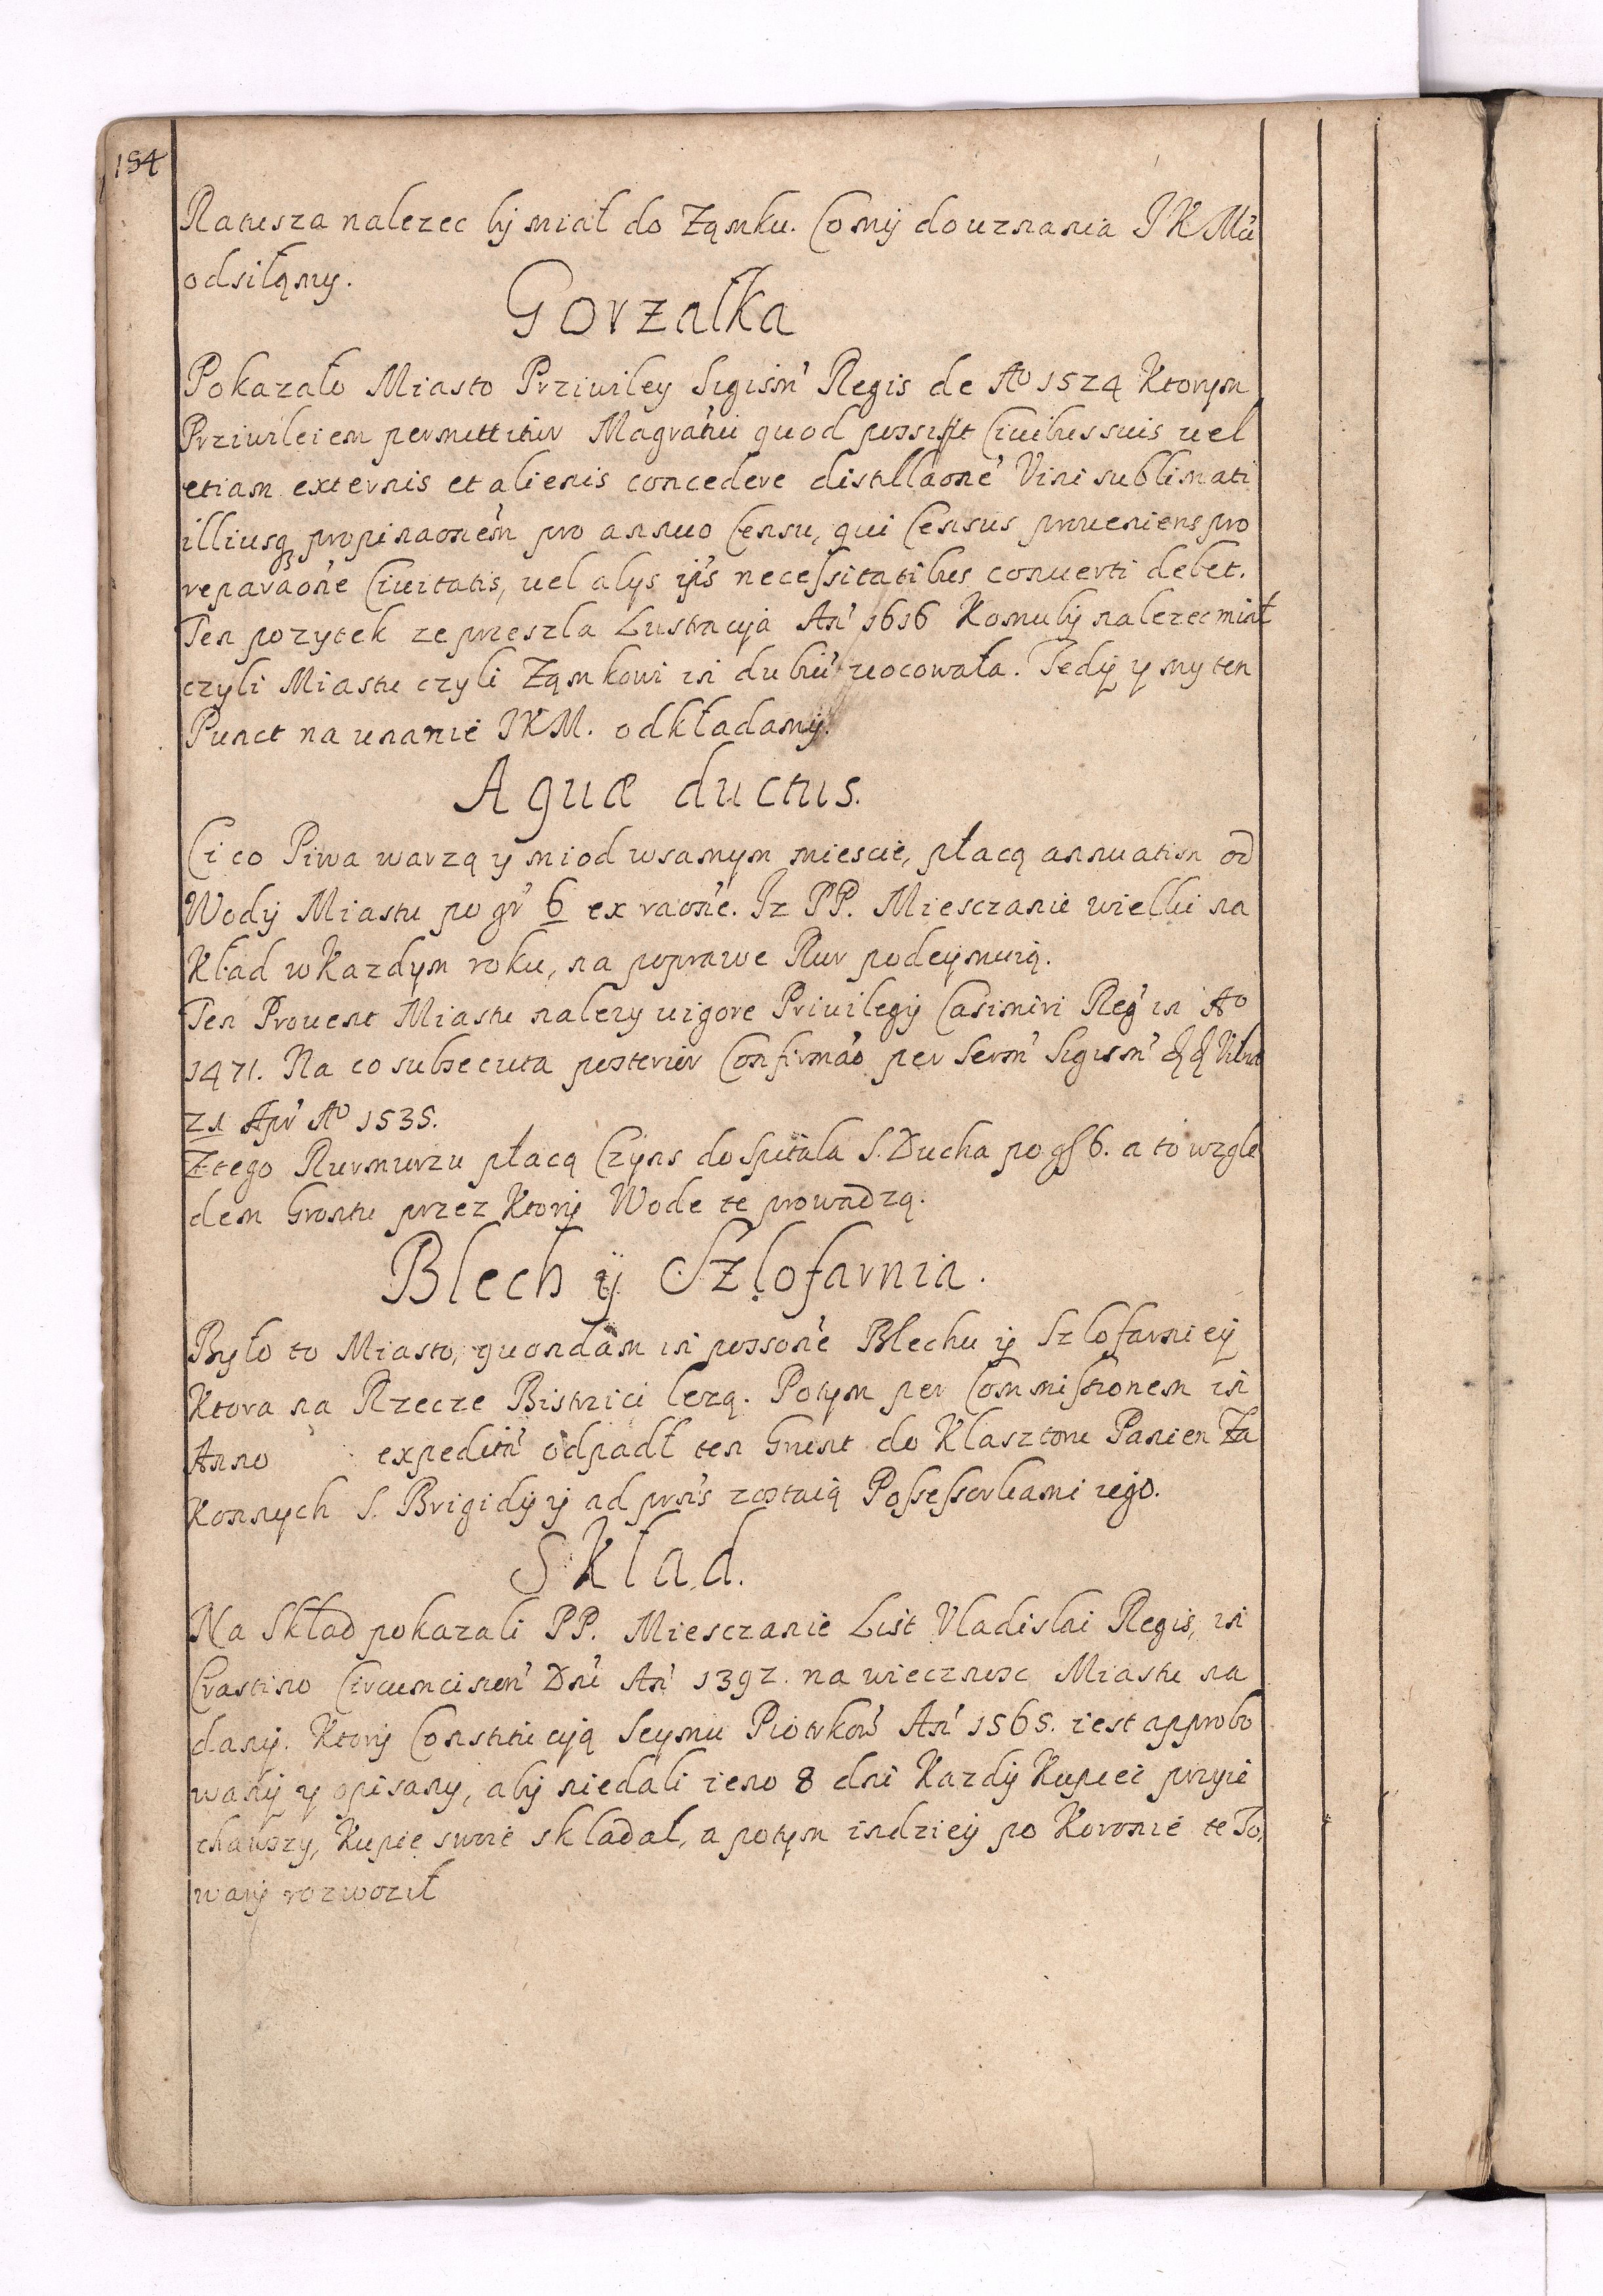 154
Ratusza nalezec by miał do Ząmku. Co my do uznania JKMći
odsiłąmy.
Gorzałka
Pokazało Miasto Prziwiley Sigism' Regis de Aº 1524 Ktorym
Prziwileiem permittitur Magra'tui quod possit Ciuibus suis uel
etiam externis et alienis concedere distillaone' Vini sublimati
illiusq propinaonem' pro annuo Censu, qui Census proueniens pro
reparaone' Ciuitatis, uel alys ijs necessitatibus conuerti debet.
Ten pozytek ze przeszla Lustracyia An' 1616 Komu by nalezec miał
czyli Miastu czyli Ząmkowi in dubiu' reuocowała. Tedy y my ten
Punct na unanie JKM. odkładamy.
Aquæ ductus.
Ci co Piwa warzą y miod wsamym miescie, płacą annuatim od
Wody Miastu po gr' 6 ex raone'. Iz PP. Miesczanie wielki na
kład w Kazdym roku, na poprawe Rur podeymuią.
Ten Prouent Miastu nalezy uigore Priuilegij Casimiri Reg' in Aº
1471. Na co subsecuta posterior Confirmao' per Serm' Sigism'
21 Apr' Aº 1535.
Z tego Rurmurzu płacą Czyns do Spitala S. Ducha po gſ 6. a to wzgle
dem Grontu przez Ktory Wode te prowadzą.
Blech ÿ Szlofarnia.
Było to Miasto, quondam in possone' Blechu ÿ Szlofarniey
Ktora na Rzecze Bistrzici lezą. Potym per Commissionem in
Anno expeditu' odpadł ten Grunt do Klasztoru Panien Za
Konnych S. Brigidy ÿ ad prns' zostaią Possessorkami iego.
Skład.
Na Skład pokazali PP. Miesczanie List Vladislai Regis, in
Crastino Circumcision' Dni' An' 1392. na wiecznosc Miastu na
dany. Ktory Constitucyią Seymu Piotrkow' An' 1565. iest approbo
wany y opisany, aby niedali ieno 8 dni Kazdy Kupiec przyie
chawszy, Kupie swoie składał, a potym indziey po Koronie te To,
wary rozwoził